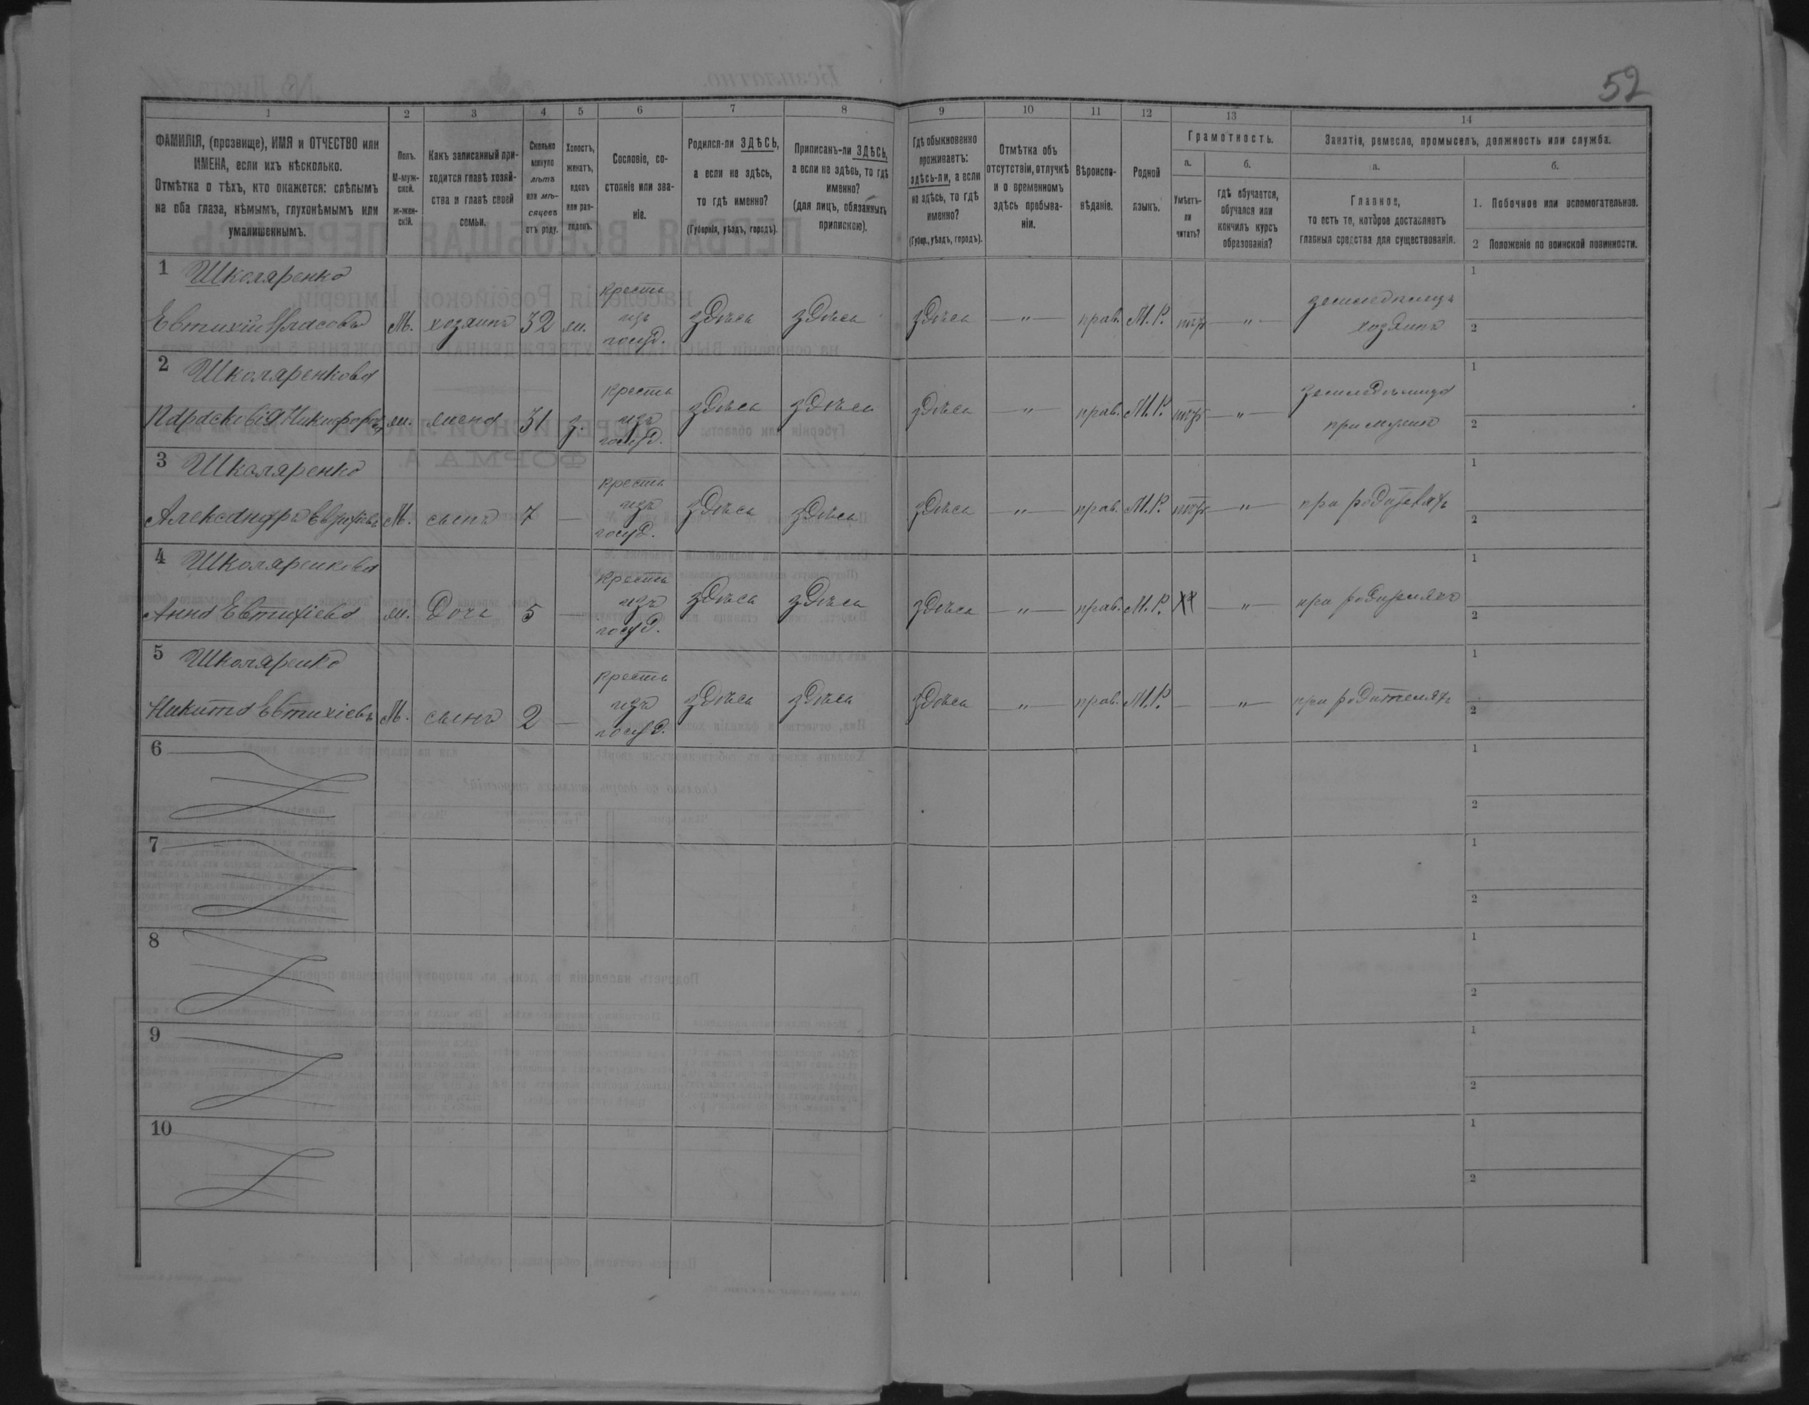 52
1 2 3 4 5 6 7 8 9 10 11 12 13 14
ФАМИЛІЯ, (прозвище), ИМЯ и ОТЧЕСТВО или
ИМЕНА, если ихъ нѣсколько.
Отмѣтка о тѣхъ, кто окажется: слѣпымъ
на оба глаза, нѣмымъ, глухонѣмымъ или
умалишеннымъ.
Полъ.
М-муж-
ской.
ж-жен-
скій.
Какъ записанный при-
ходится главѣ хозяй-
ства и главѣ своей
семьи.
Сколько
минуло
лѣтъ
или мѣ-
сяцевъ
отъ роду.
Холостъ,
женатъ,
вдовъ
или раз-
веденъ.
Сословіе, со-
стояніе или зва-
ніе.
Родился-ли ЗДѢСЬ,
а если не здѣсь,
то гдѣ именно?
(Губернія, уѣздъ, городъ).
Приписанъ-ли ЗДѢСЬ,
а если не здѣсь, то гдѣ
именно?
(для лицъ, обязанныхъ
припискою).
Гдѣ обыкновенно
проживаетъ:
здѣсь-ли, а если
не здѣсь, то гдѣ
именно?
(Губер., уѣздъ, городъ).
Отмѣтка объ
отсутствіи, отлучкѣ
и о временномъ
здѣсь пребыва-
ніи.
Вѣроиспо-
вѣданіе.
Родной
языкъ.
Грамотность.
а. б.
Умѣетъ-
ли
читать?
гдѣ обучается,
обучался или
кончилъ курсъ
образованія?
Занятіе, ремесло, промыселъ, должность или служба.
а. б.
Главное,
то есть то, которое доставляетъ
главныя средства для существованія.
1. Побочное или вспомогательное.
2 Положеніе по воинской повинности.
1 Школяренко
Евтихій Власовъ М. хозяинъ 32 ж. крестьн изъ госуд. здѣсь здѣсь здѣсь — " — прав. М.Р. — " —
хозяинъ
1
2
2 Школяренкова
Парасковія ж. жена 31 з. крестьн изъ госуд. здѣсь здѣсь здѣсь — " — прав. М.Р. — " —
при мужѣ
1
2
3 Школяренко
Александръ М. сынъ 7 — крестьн изъ госуд. здѣсь здѣсь здѣсь — " — прав. М.Р. — " — при родителяхъ
1
2
4 Школяренкова
Анна Евтихіева ж. дочь 5 — крестьн изъ госуд. здѣсь здѣсь здѣсь — " — прав. М.Р. — " — при родителяхъ
1
2
5 Школяренко
Никита Евтихіевъ М. сынъ 2 — крестьн изъ госуд. здѣсь здѣсь здѣсь — " — прав. М.Р. — — " — при родителяхъ
1
2
6
1
2
7
1
2
8
1
2
9
1
2
10
1
2